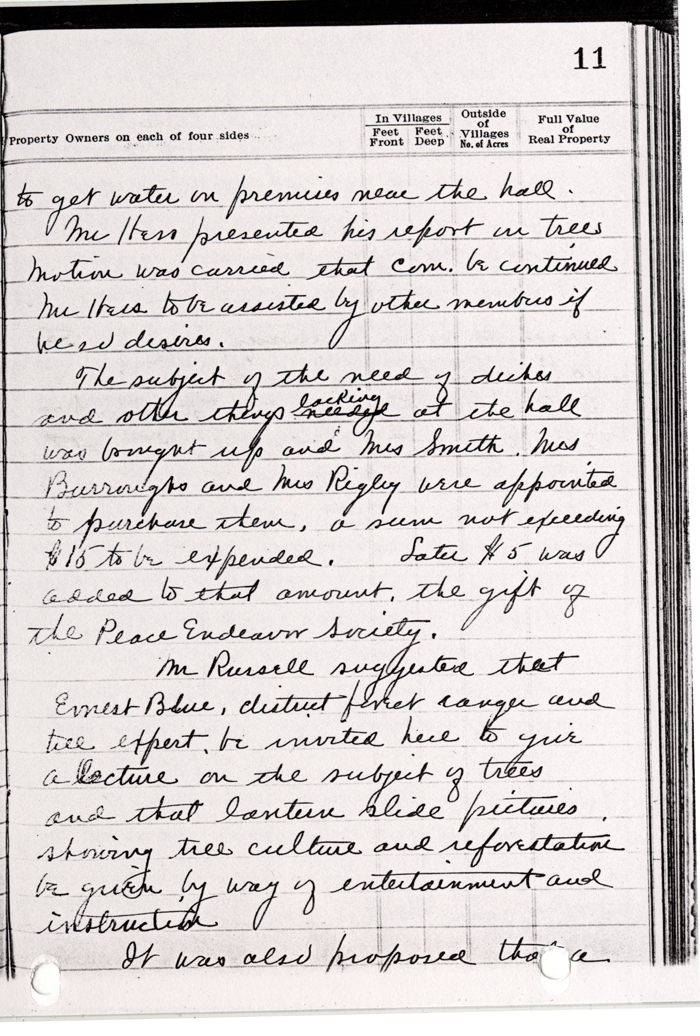 11
Property Owners on each of four sides
In Villages
Feet Front
Feet Deep
Outside of Villages No. of Acres
Full Value of Real Property
to get water on premises near the hall.
Mr Hess presented his report on trees
Motion was carried that Com. be continued
Mr Hess to be assisted by other members if
he so desires.
The subject of the need of dishes
and other things needed lacking at the hall
was brought up and Mrs Smith, Mrs
Burroughs and Mrs Rigley were appointed
to purchase them, a sum not exceeding
$15 to be expended. Later $5 was
added to that amount, the gift of
the Peace Endeavor Society.
Mr Russell suggested that
Ernest Blue, district forest ranger and
tree expert, be invited here to give
a lecture on the subject of trees
and that lantern slide pictures,
showing tree culture and reforestation
be given by way of entertainment and
instruction
It was also proposed that a